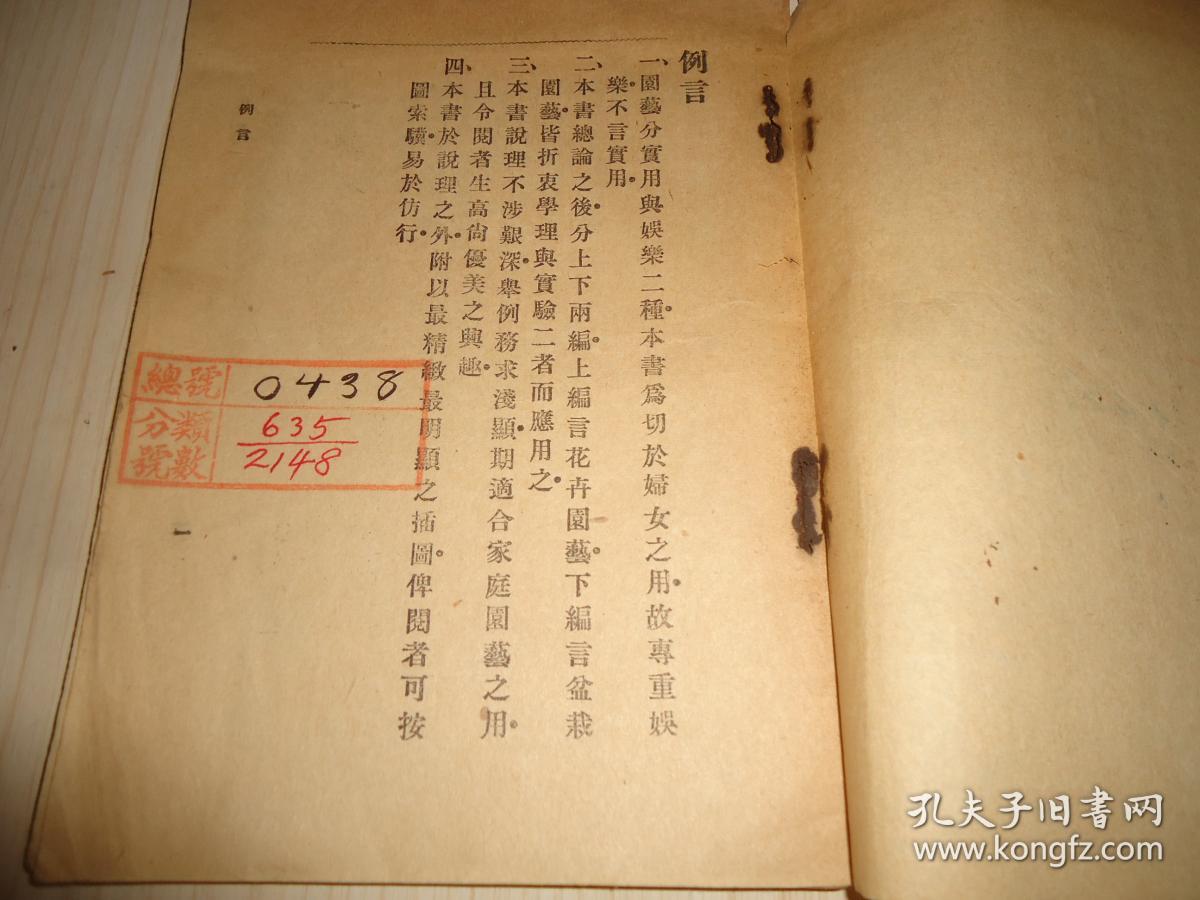 例言
一、園藝分實用與娛樂二種。本書爲切於婦女之用。故專重娛
樂。不言實用。
二、本書總論之後。分上下兩編。上編言花卉園藝。下編言盆栽
園藝。皆折衷學理與實驗二者而應用之。
三、本書說理不涉艱深。舉例務求淺顯。期適合家庭園藝之用。
且令閱者生高尙優美之興趣。
四、本書於說理之外。附以最精緻最明顯之插圖。俾閱者可按
圖索驥。易於仿行。
例言
一
總號 0438
分類號數 635
2148
孔夫子旧书网
www.kongfz.com